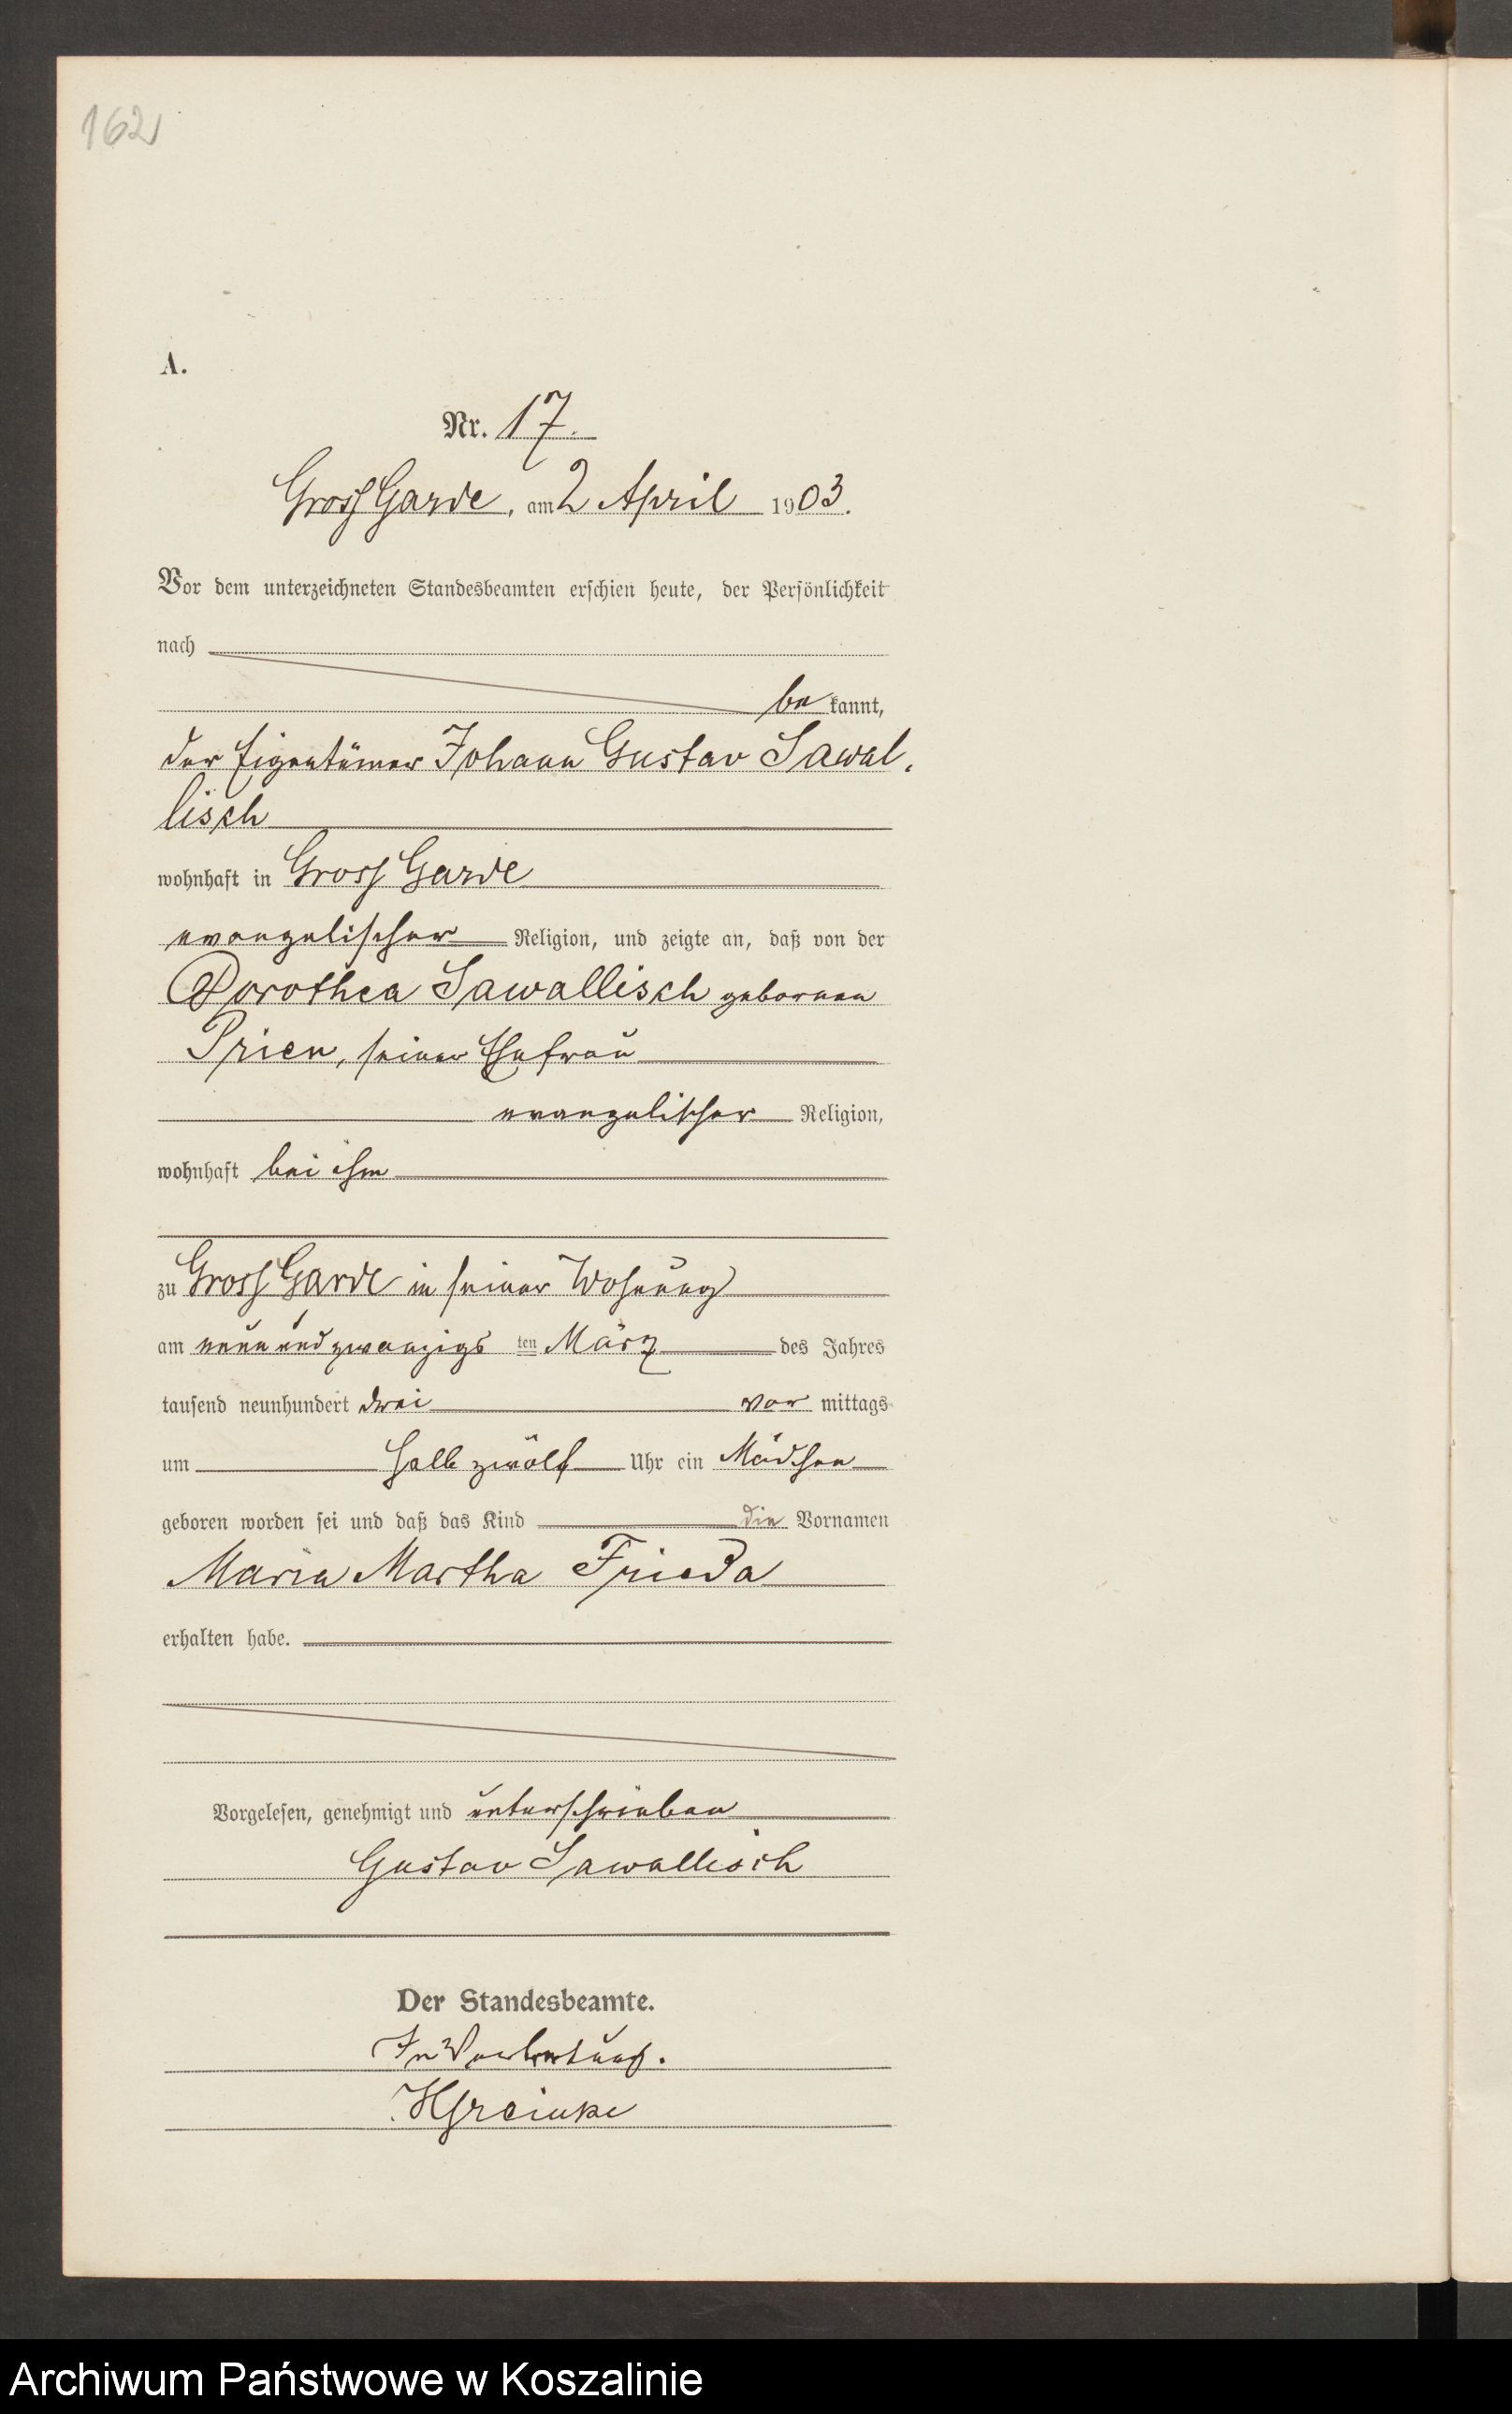 162
A.
Nr. 17.
Gross Garde, am 2 April 1903.
Vor dem unterzeichneten Standesbeamten erschien heute, der Persönlichkeit
nach
bekannt,
der Eigentümer Johann Gustav Sawal-
lisch
wohnhaft in Gross Garde
evangelischer Religion, und zeigte an, daß von der
Dorothea Sawallisch geborenen
Prien, seiner Ehefrau
evangelischer Religion,
wohnhaft bei ihm
zu Gross Garde in seiner Wohnung
am neunundzwanzigsten März des Jahres
tausend neunhundert drei vormittags
um halb zwölf Uhr ein Mädchen
geboren worden sei und daß das Kind die Vornamen
Maria Martha Frieda
erhalten habe.
Vorgelesen, genehmigt und unterschrieben
Gustav Sawallisch
Der Standesbeamte.
In Vertretung.
Archiwum Państwowe w Koszalinie